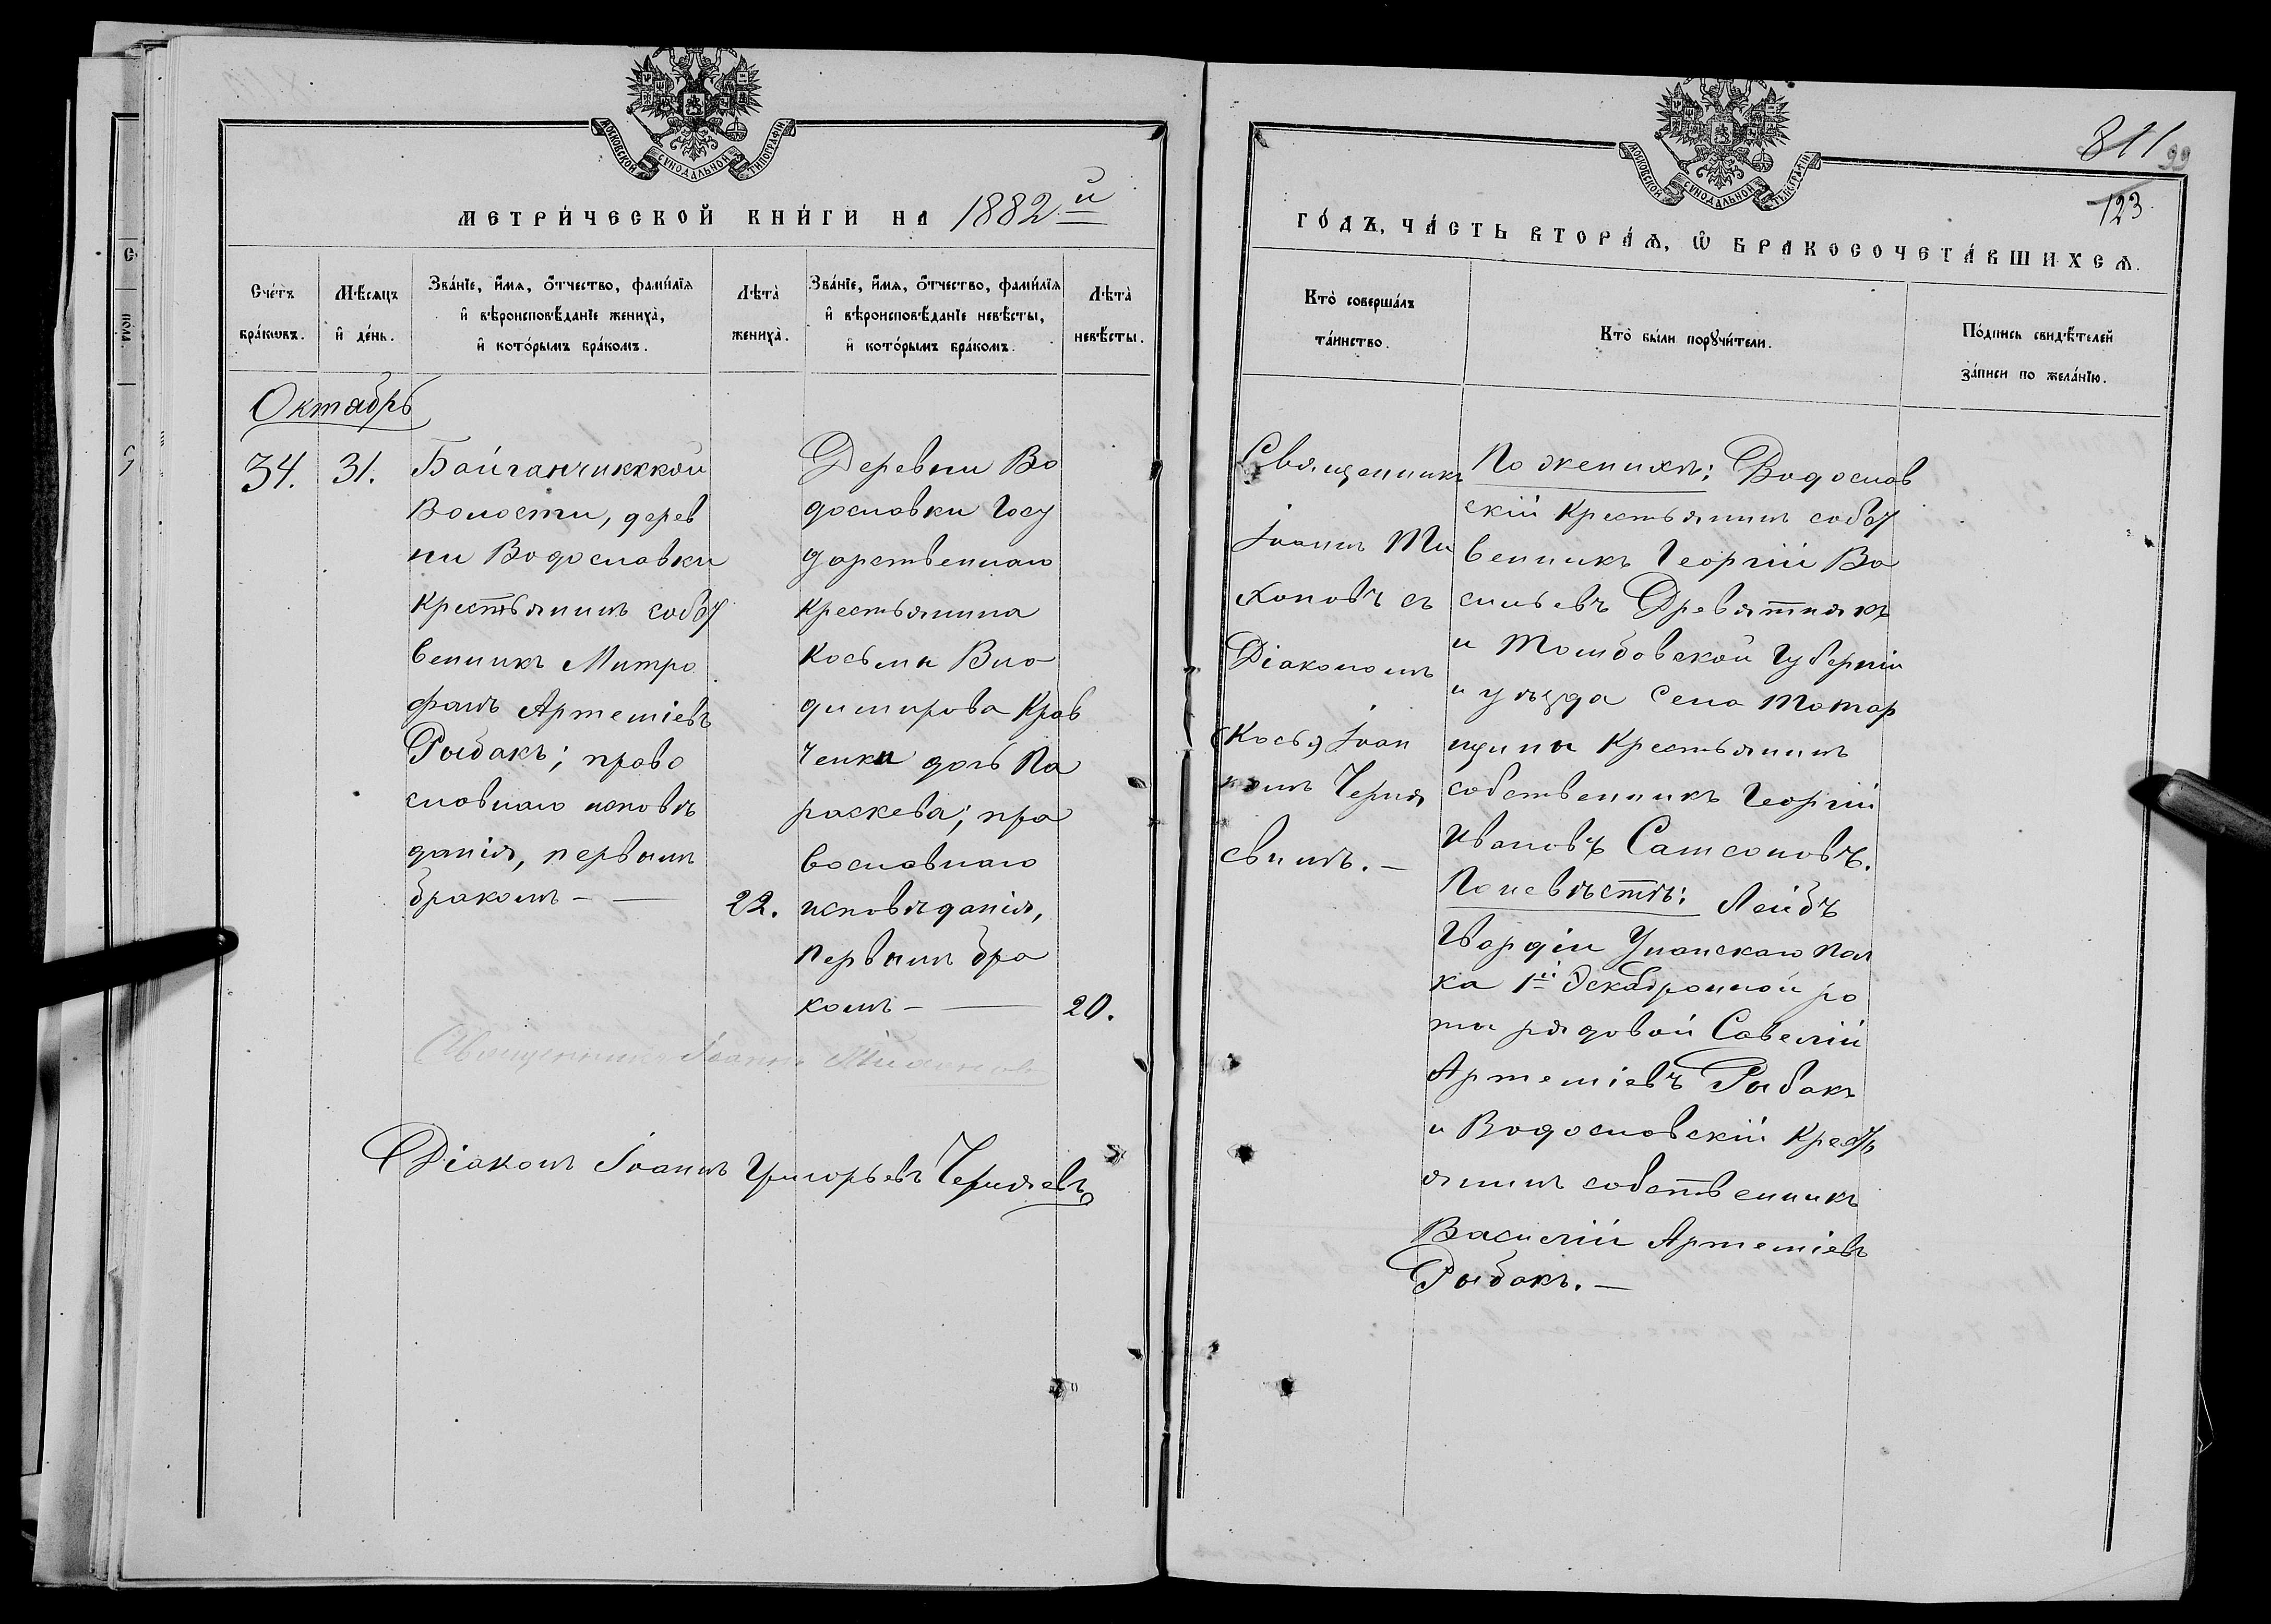 МОСКОВСКОЙ СѴНОДАЛЬНОЙ ТИПОГРАФІИ
МЕТРИ́ЧЕСКОЙ КНИ́ГИ НА 1882й
Сче́тъ бра́кѡвъ.
Мѣ́сяцъ и҆ де́нь.
Зва́нїе, и҆́мѧ, ѻ҆́тчество, фами́лїя
и҆ вѣроисповѣ́данїе жениха̀,
и҆ кото́рымъ бра́комъ.
Лѣта̀
жениха̀.
Зва́нїе, и҆́мѧ, ѻ҆́тчество, фами́лїя
и҆ вѣроисповѣ́данїе невѣ́сты,
и҆ кото́рымъ бра́комъ.
Лѣта̀
невѣ́сты.
Октябрь
34.
31.
Байганчикккой
Волости, дерев
ни Водославки
крестьянинъ собст
венникъ Митро
фанъ Артеміевъ
Рыбакъ; право
славнаго исповѣ
данія, первымъ
бракомъ —
22.
Деревни Во
дославки Госу
дарственнаго
крестьянина
Косьмы Вла
димирова Крав
ченка дочь Па
раскева; пра
вославнаго
исповѣданія,
первымъ бра
комъ —
20.
Священникъ Іоаннъ Михановъ
Діаконъ Іоаннъ Григорьевъ Черняевъ
МОСКОВСКОЙ СѴНОДАЛЬНОЙ ТИПОГРАФІИ
811 99
123
ГО́ДЪ, ЧА́СТЬ ВТОРА́Ѧ, Ѡ҆ БРАКОСОЧЕТА́ВШИХСѦ.
Кто̀ соверша́лъ
та́инство.
Кто̀ бы́ли порꙋчи́тели.
По́дпись свидѣ́телей
за́писи по жела́нїю.
Священникъ
Іоаннъ Ми
хановъ съ
Діакономъ
(Кось) Іоан
номъ Черня
евымъ. —
По женихѣ: Водослав
скій Крестьянинъ собст
венникъ Георгій Ва
сильевъ Древятнякъ
и Тамбовской Губерніи
и уѣзда Села Татар
щины Крестьянинъ
собственникъ Георгій
Ивановъ Самсоновъ.
По невѣстѣ: Лейбъ
Гвардіи Уланскаго пол
ка 1й Эскадронной ро
ты рядовой Савелій
Артеміевъ Рыбакъ
и Водославскій Кресть
янинъ собственникъ
Василій Артеміевъ
Рыбакъ. —